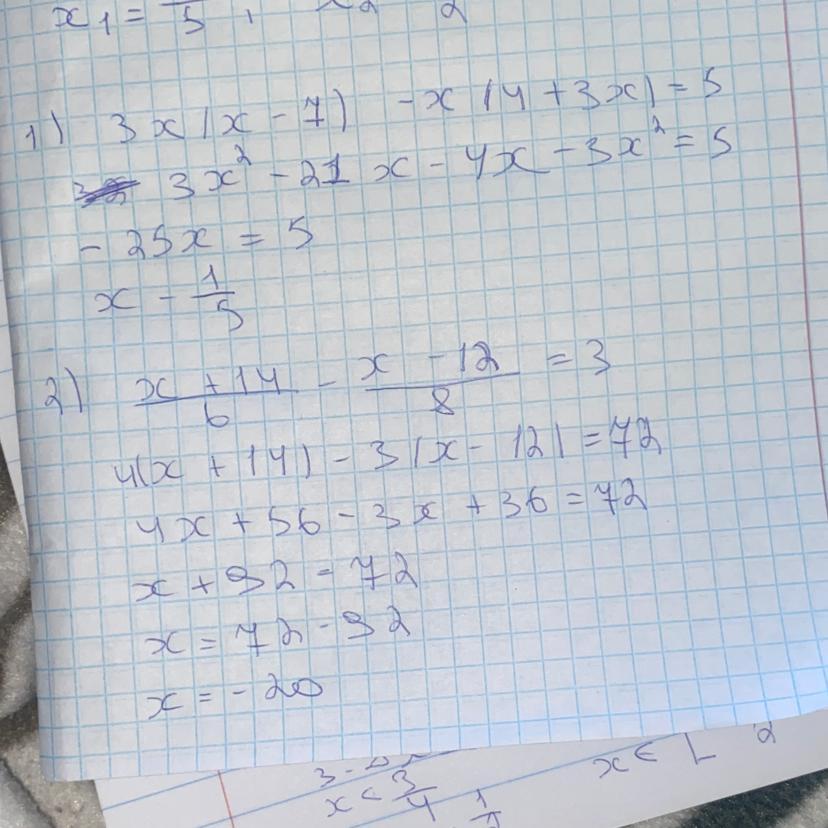 x₁ = /5 ,
1) 3x(x - 7) - x(4 + 3x) = 5
3x² - 21x - 4x - 3x² = 5
- 25x = 5
x - 1/5
2) (x + 14)/6 - (x - 12)/8 = 3
4(x + 14) - 3(x - 12) = 72
4x + 56 - 3x + 36 = 72
x + 92 = 72
x = 72 - 92
x = - 20
x < 3/4
x ∈ [